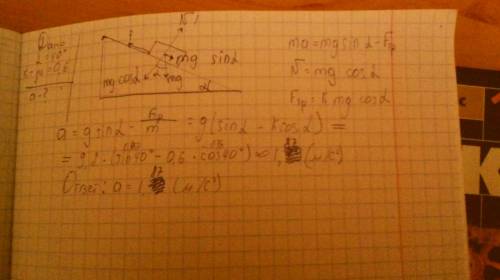 Дано:
α=40°
k=μ=0,6
a-?
N
F
mg sinα
mg cosα
mg
α
ma=mg sinα-Fтр
N=mg cosα
Fтр=k mg cosα
a=g sinα - Fтр/m = g(sinα - k cosα) =
= 9,8 · (sin40° - 0,6 · cos40°) ≈ 1,82 (м/с²)
Ответ: a = 1,82 (м/с²)